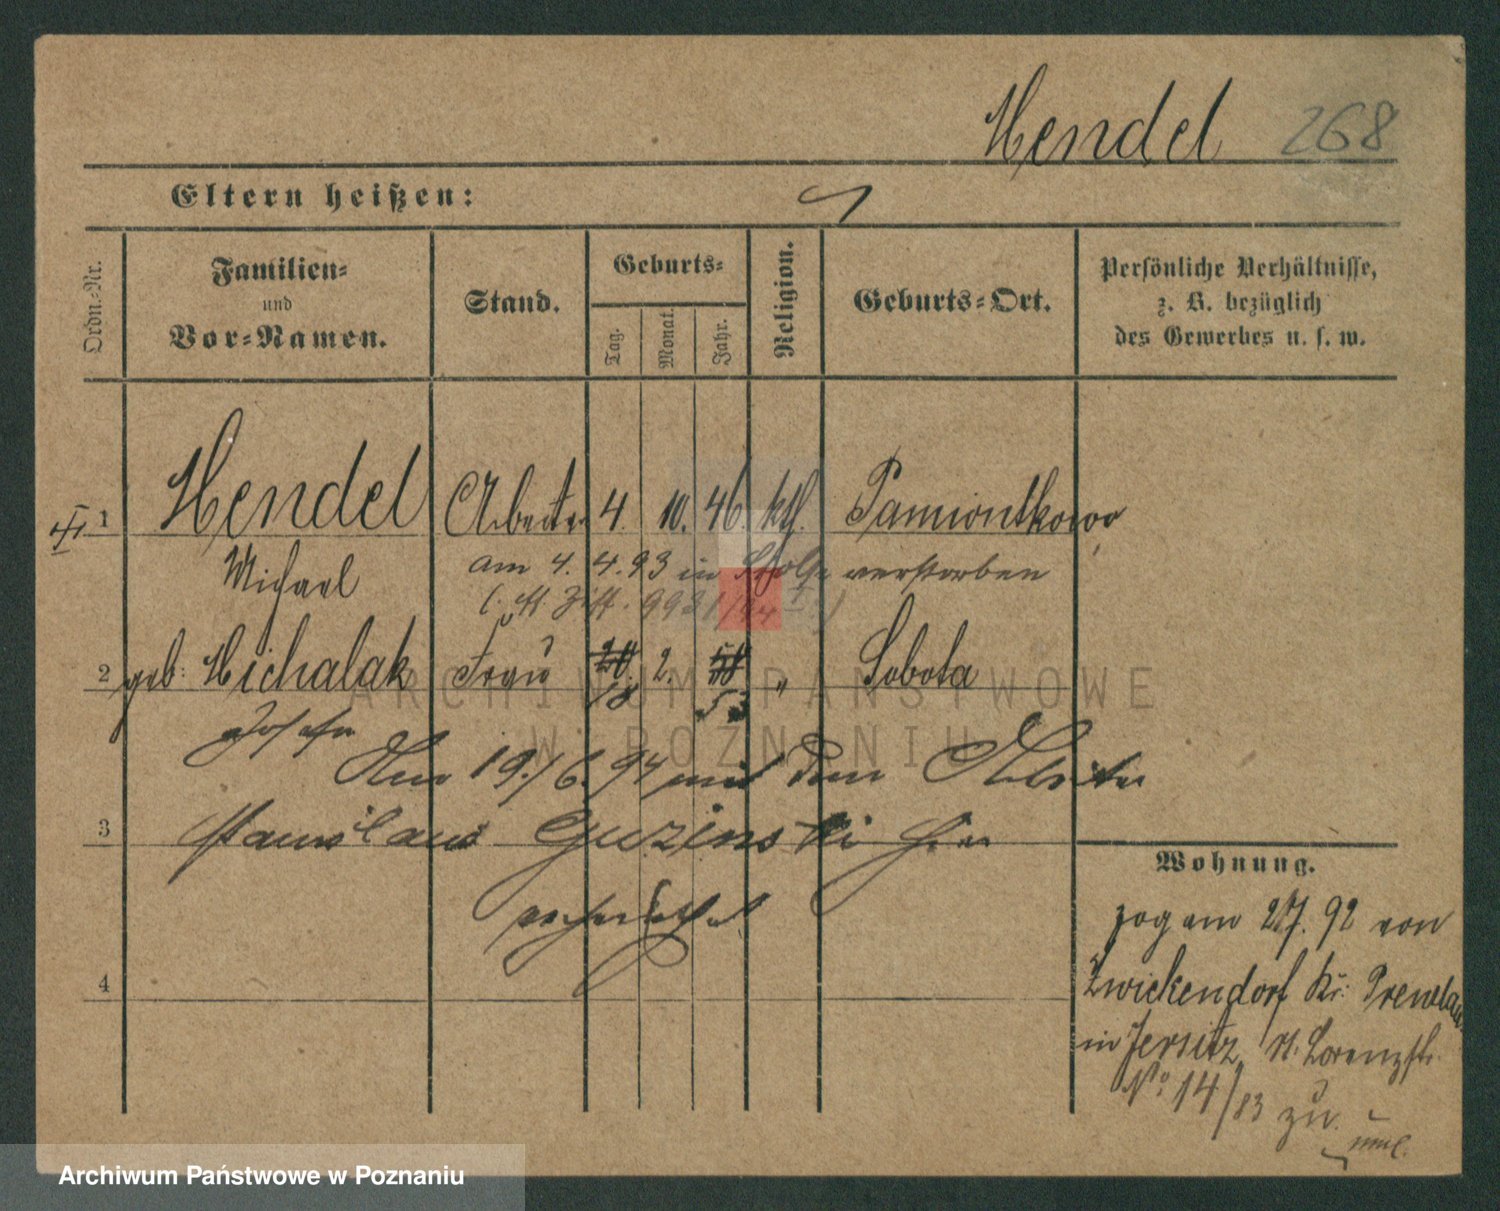 Hendel 268
Eltern heißen:
Ordn.-Nr.
Familien-
und
Vor-Namen.
Stand.
Geburts-
Tag.
Monat.
Jahr.
Religion.
Geburts-Ort.
Persönliche Verhältnisse,
z. B. bezüglich
des Gewerbes u. s. w.
1 Hendel Arbeiter 4. 10. 46. kth. Pamiontkowo
Michael
am 4. 4. 93 in verstorben
2 geb. Michalak Frau 2. " Sobota
18 53
Josefa
Am 19./6. 94 mit dem Arbeiter
3 Stanislaus Guzinski hier
verheirathet
4
Wohnung.
zog am 92 von
Zwickendorf Kr: Prenzlau
in Jersitz, St. Lorenzstr.
No. 14/83 zu.
ARCHIWUM PAŃSTWOWE
W POZNANIU
Archiwum Państwowe w Poznaniu